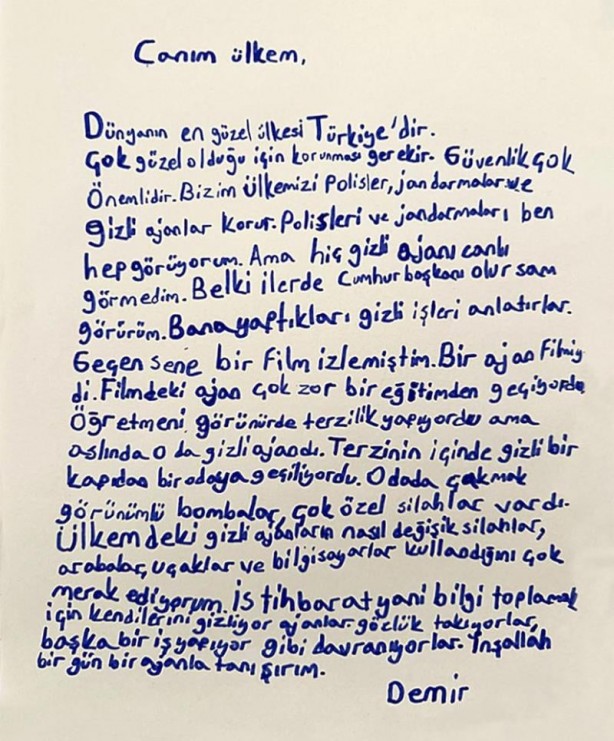 Canım ülkem,
Dünyanın en güzel ülkesi Türkiye'dir.
Çok güzel olduğu için korunması gerekir. Güvenlik çok
Önemlidir. Bizim Ülkemizi Polisler, jandarmalar ve
gizli ajanlar Korur. Polisleri ve jandarmaları ben
hep görüyorum. Ama hiç gizli ajanı canlı
görmedim. Belki ilerde Cumhurbaşkanı olursam
görürüm. Bana yaptıkları gizli işleri anlatırlar.
Geçen sene bir Film izlemiştim. Bir ajan Filmiy
di. Filmdeki ajan çok zor bir eğitimden geçiyordu
Öğretmeni görünürde terzilik yapıyordu ama
aslında o da gizli ajandı. Terzinin içinde gizli bir
kapıdan bir odaya geçiliyordu. O dada çakmak
görünümlü bombalar, çok özel silahlar vardı.
Ülkemdeki gizli ajanların nasıl değişik silahlar,
arabalar, uçaklar ve bilgisayarlar kullandığını çok
merak ediyorum. İstihbarat yani bilgi toplamak
için kendilerini gizliyor ajanlar. gözlük takıyorlar,
başka bir iş yapıyor gibi davranıyorlar. İnşallah
bir gün bir ajanla tanışırım.
Demir